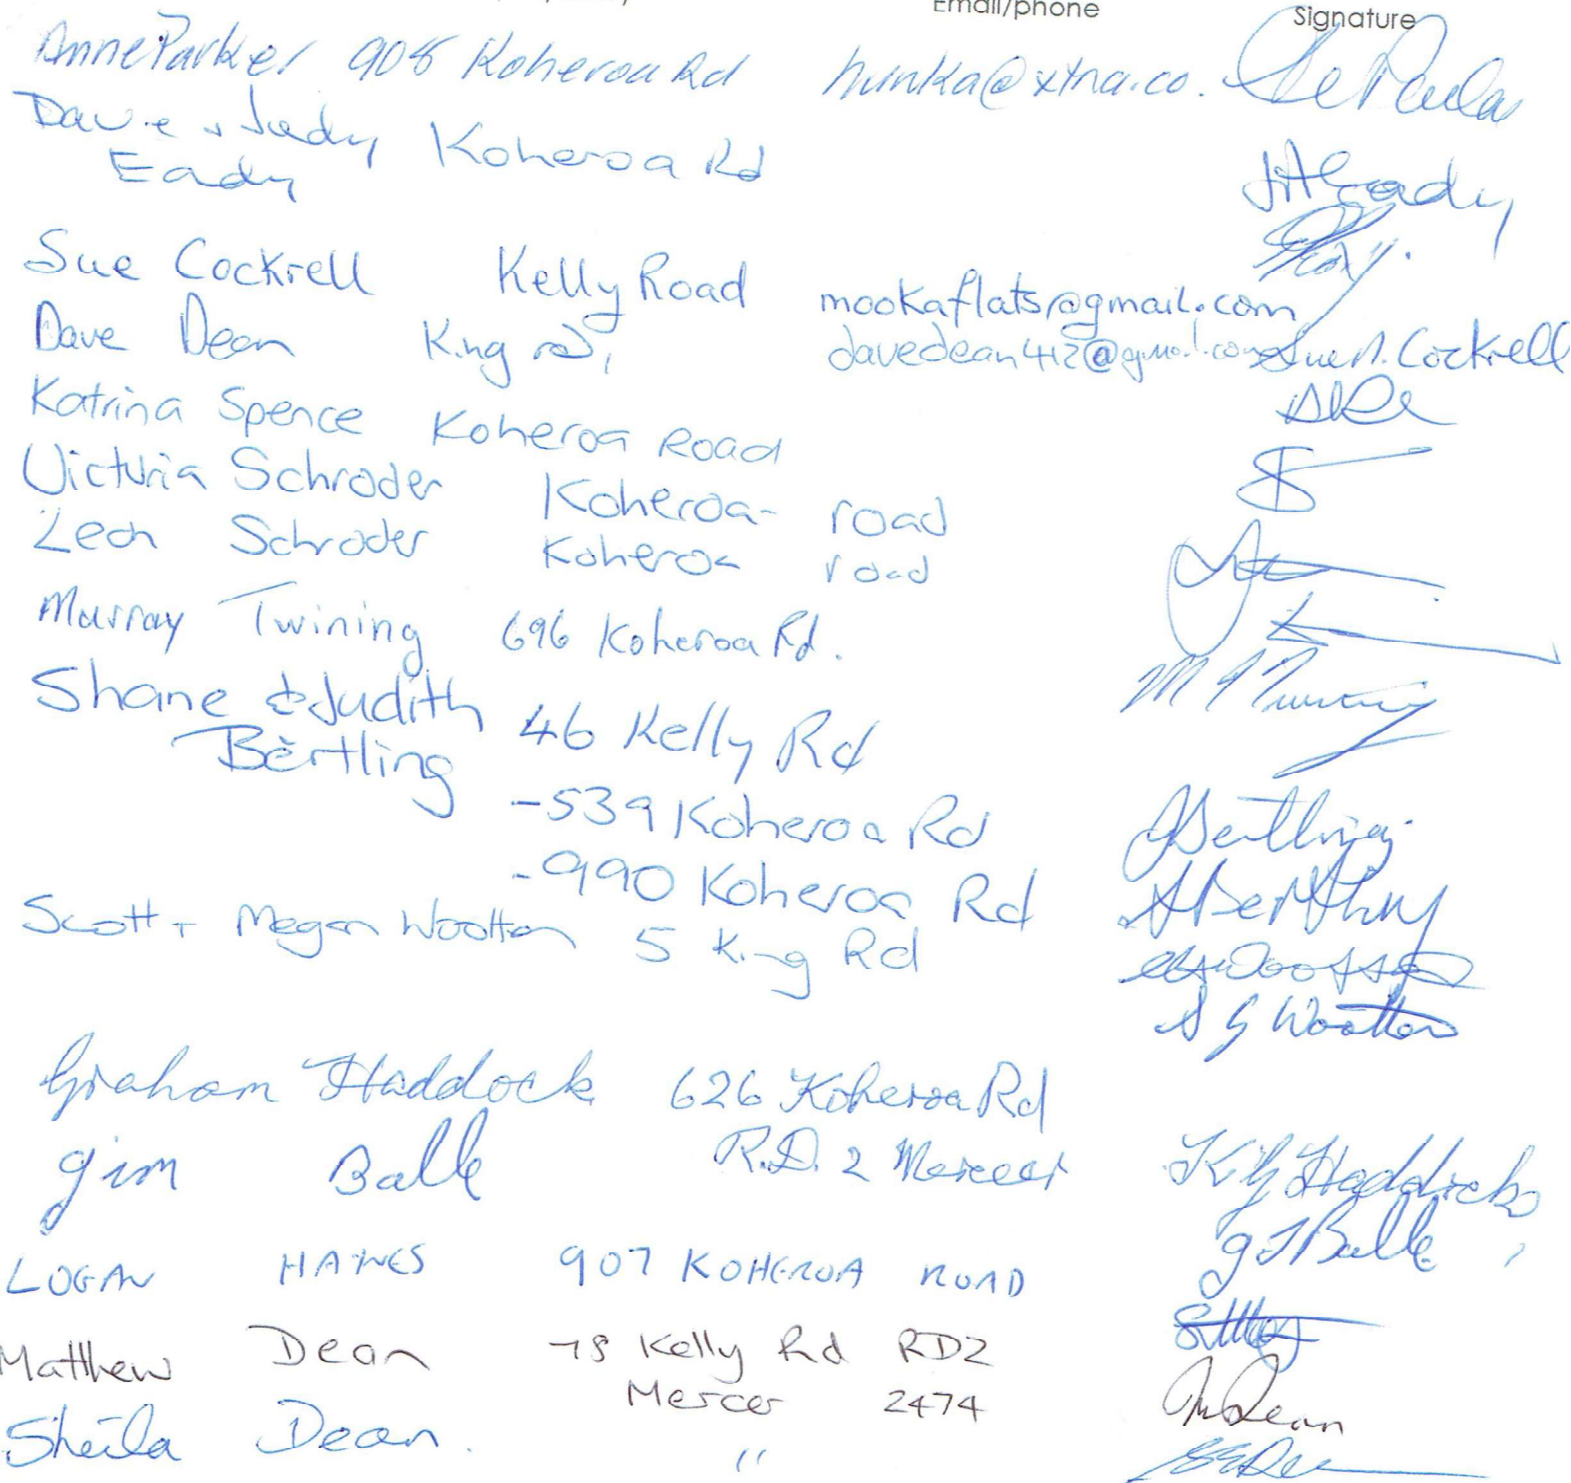 Email/phone Signature
Anne Parker 908 Koheroa Rd hunka@xtra.co.
Dave + Judy Koheroa Rd
Eady JA Eady
Sue Cockrell Kelly Road mookaflats@gmail.com
Dave Dean King rd, davedean412@gmail.com Sue A. Cockrell
Katrina Spence Koheroa Road
Victoria Schroder Koheroa road
Leon Schroder Koheroa road
Murray Twining 696 Koheroa Rd.
Shane & Judith 46 Kelly Rd
Bertling
-539 Koheroa Rd JBertling
-990 Koheroa Rd SBertling
Scott + Megan Wootton 5 King Rd
S G Wootton
Graham Haddock 626 Koheroa Rd
Jim Balle R.D. 2 Mercer K G Haddock
J Balle
LOGAN HAINES 907 KOHEROA ROAD
Matthew Dean 78 Kelly Rd RD2
Mercer 2474 M Dean
Sheila Dean. "